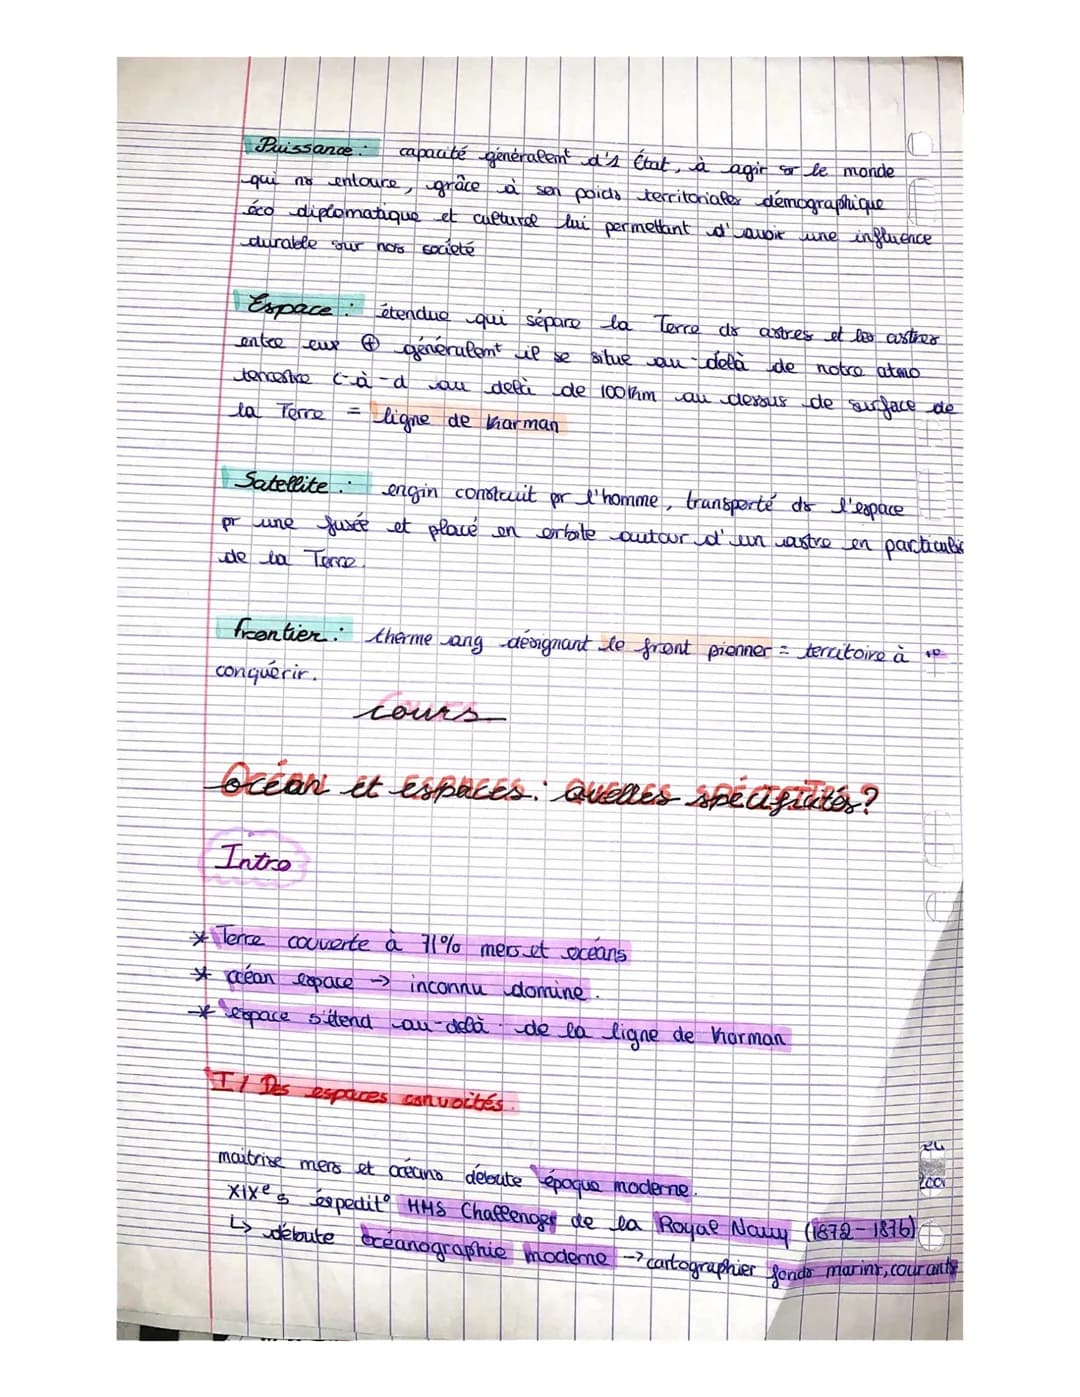 Puissance : capacité généralemt d's État, à agir sr le monde
qui ns entoure, grâce à son poids territoriales démographique
éco diplomatique et culturel lui permettant d'avoir une influence
durable sur nors société
Espace : étendue qui sépare la Terre ds astres et les astres
entre eux ⊕ généralemt il se situe au-delà de notre atmo
terrestre c-à-d au delà de 100km au dessus de surface de
la Terre = ligne de Karman
Satellite : engin construit pr l'homme, transporté ds l'espace
pr une fusée et placé en orbite autour d'un astre en particulier
de la Terre.
frontier : therme ang désignant le front pionner = territoire à
conquérir.
cours
Océan et espaces : quelles spécificités ?
Intro
* Terre couverte à 71% mers et océans
* océan espace → inconnu domine.
* espace s'étend au-delà de la ligne de Karman
I / Des espaces convoités.
maitrise mers et océans débute époque moderne.
XIXe s éxpedit° HMS Challenger de la Royal Navy (1872-1876)
↳ débute océanographie moderne → cartographier fonds marins, courants